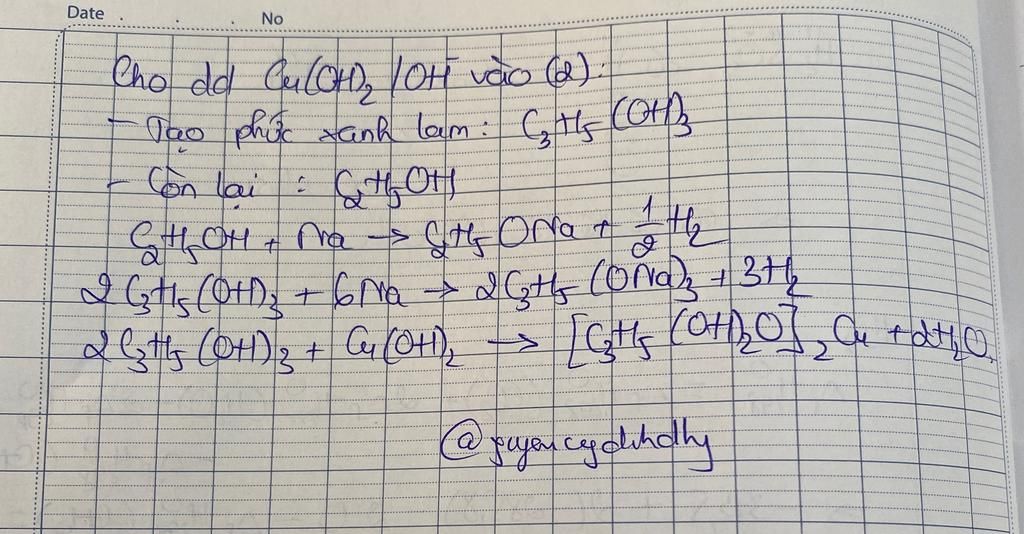 Date . . . No
Cho dd Cu(OH)₂ /OH⁻ vào (2):
- Tạo phức xanh lam: C₃H₅(OH)₃
- Còn lại : C₂H₅OH
C₂H₅OH + Na → C₂H₅ONa + 1/2 H₂
2C₃H₅(OH)₃ + 6Na → 2C₃H₅(ONa)₃ + 3H₂
2C₃H₅(OH)₃ + Cu(OH)₂ → [C₃H₅(OH)₂O]₂Cu + 2H₂O.